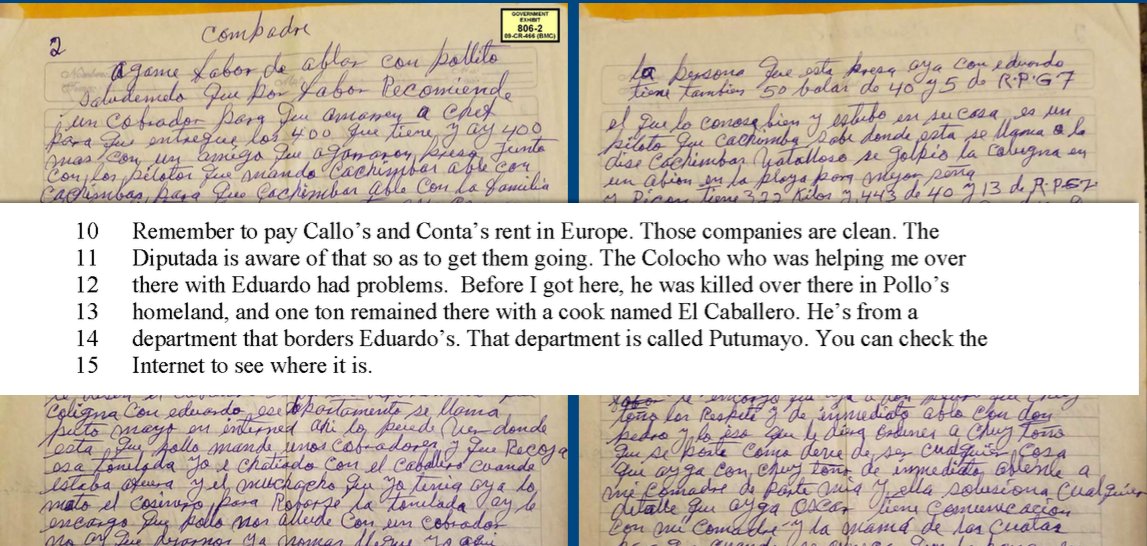 2
compadre
GOVERNMENT
EXHIBIT
806-2
09-CR-466 (BMC)
agame fabor de ablar con pollito
saludemelo que por fabor Recomiende
un cobrador para que amaren a chet
para que entregue los 400 que tiene y ay 400
mas con un amigo que agararon preso junto
con los pilotos que mando cachimbas able con
cachimbas para que cachimbas able con la familia
la persona que esta presa aya con eduardo
tiene tambien 50 balas de 40 y 5 de R.P.G 7
el que lo conose bien y estubo en su casa es un
piloto que cachimba sabe donde esta se llama o le
dise cachimbas se golpio la en
un abion en la playa por mejor seña
y tiene 322 kilos y 443 de 40 y 13 de R.P.G7
10 Remember to pay Callo's and Conta's rent in Europe. Those companies are clean. The
11 Diputada is aware of that so as to get them going. The Colocho who was helping me over
12 there with Eduardo had problems. Before I got here, he was killed over there in Pollo's
13 homeland, and one ton remained there with a cook named El Caballero. He's from a
14 department that borders Eduardo's. That department is called Putumayo. You can check the
15 Internet to see where it is.
coligna con eduardo ese departamento se llama
puto mayo en interned ahi lo puede ver donde
esta que pollo mande unos cobradores y que Recoja
esa tonelada yo e chatiado con el caballero cuando
estaba afuera y el muchacho que yo tenia aya lo
mato el cosinero para Robarse la tonelada ay le
encargo que pollo nos allude con un cobrador
no ay que dejarnos ya nomas llegue yo aqui
toño los Respete y de inmediato able con don
pedro y lo eso que le diga ordenes a chuy toño
que se porte como deve de ser cualquier cosa
que ayga con chuy toño de inmediato ablenle a
mi comadre de parte mia y ella solusiona cualquier
detalle que ayga Oscar tiene comunicacion
con mi comadre y la mamá de las cuatas